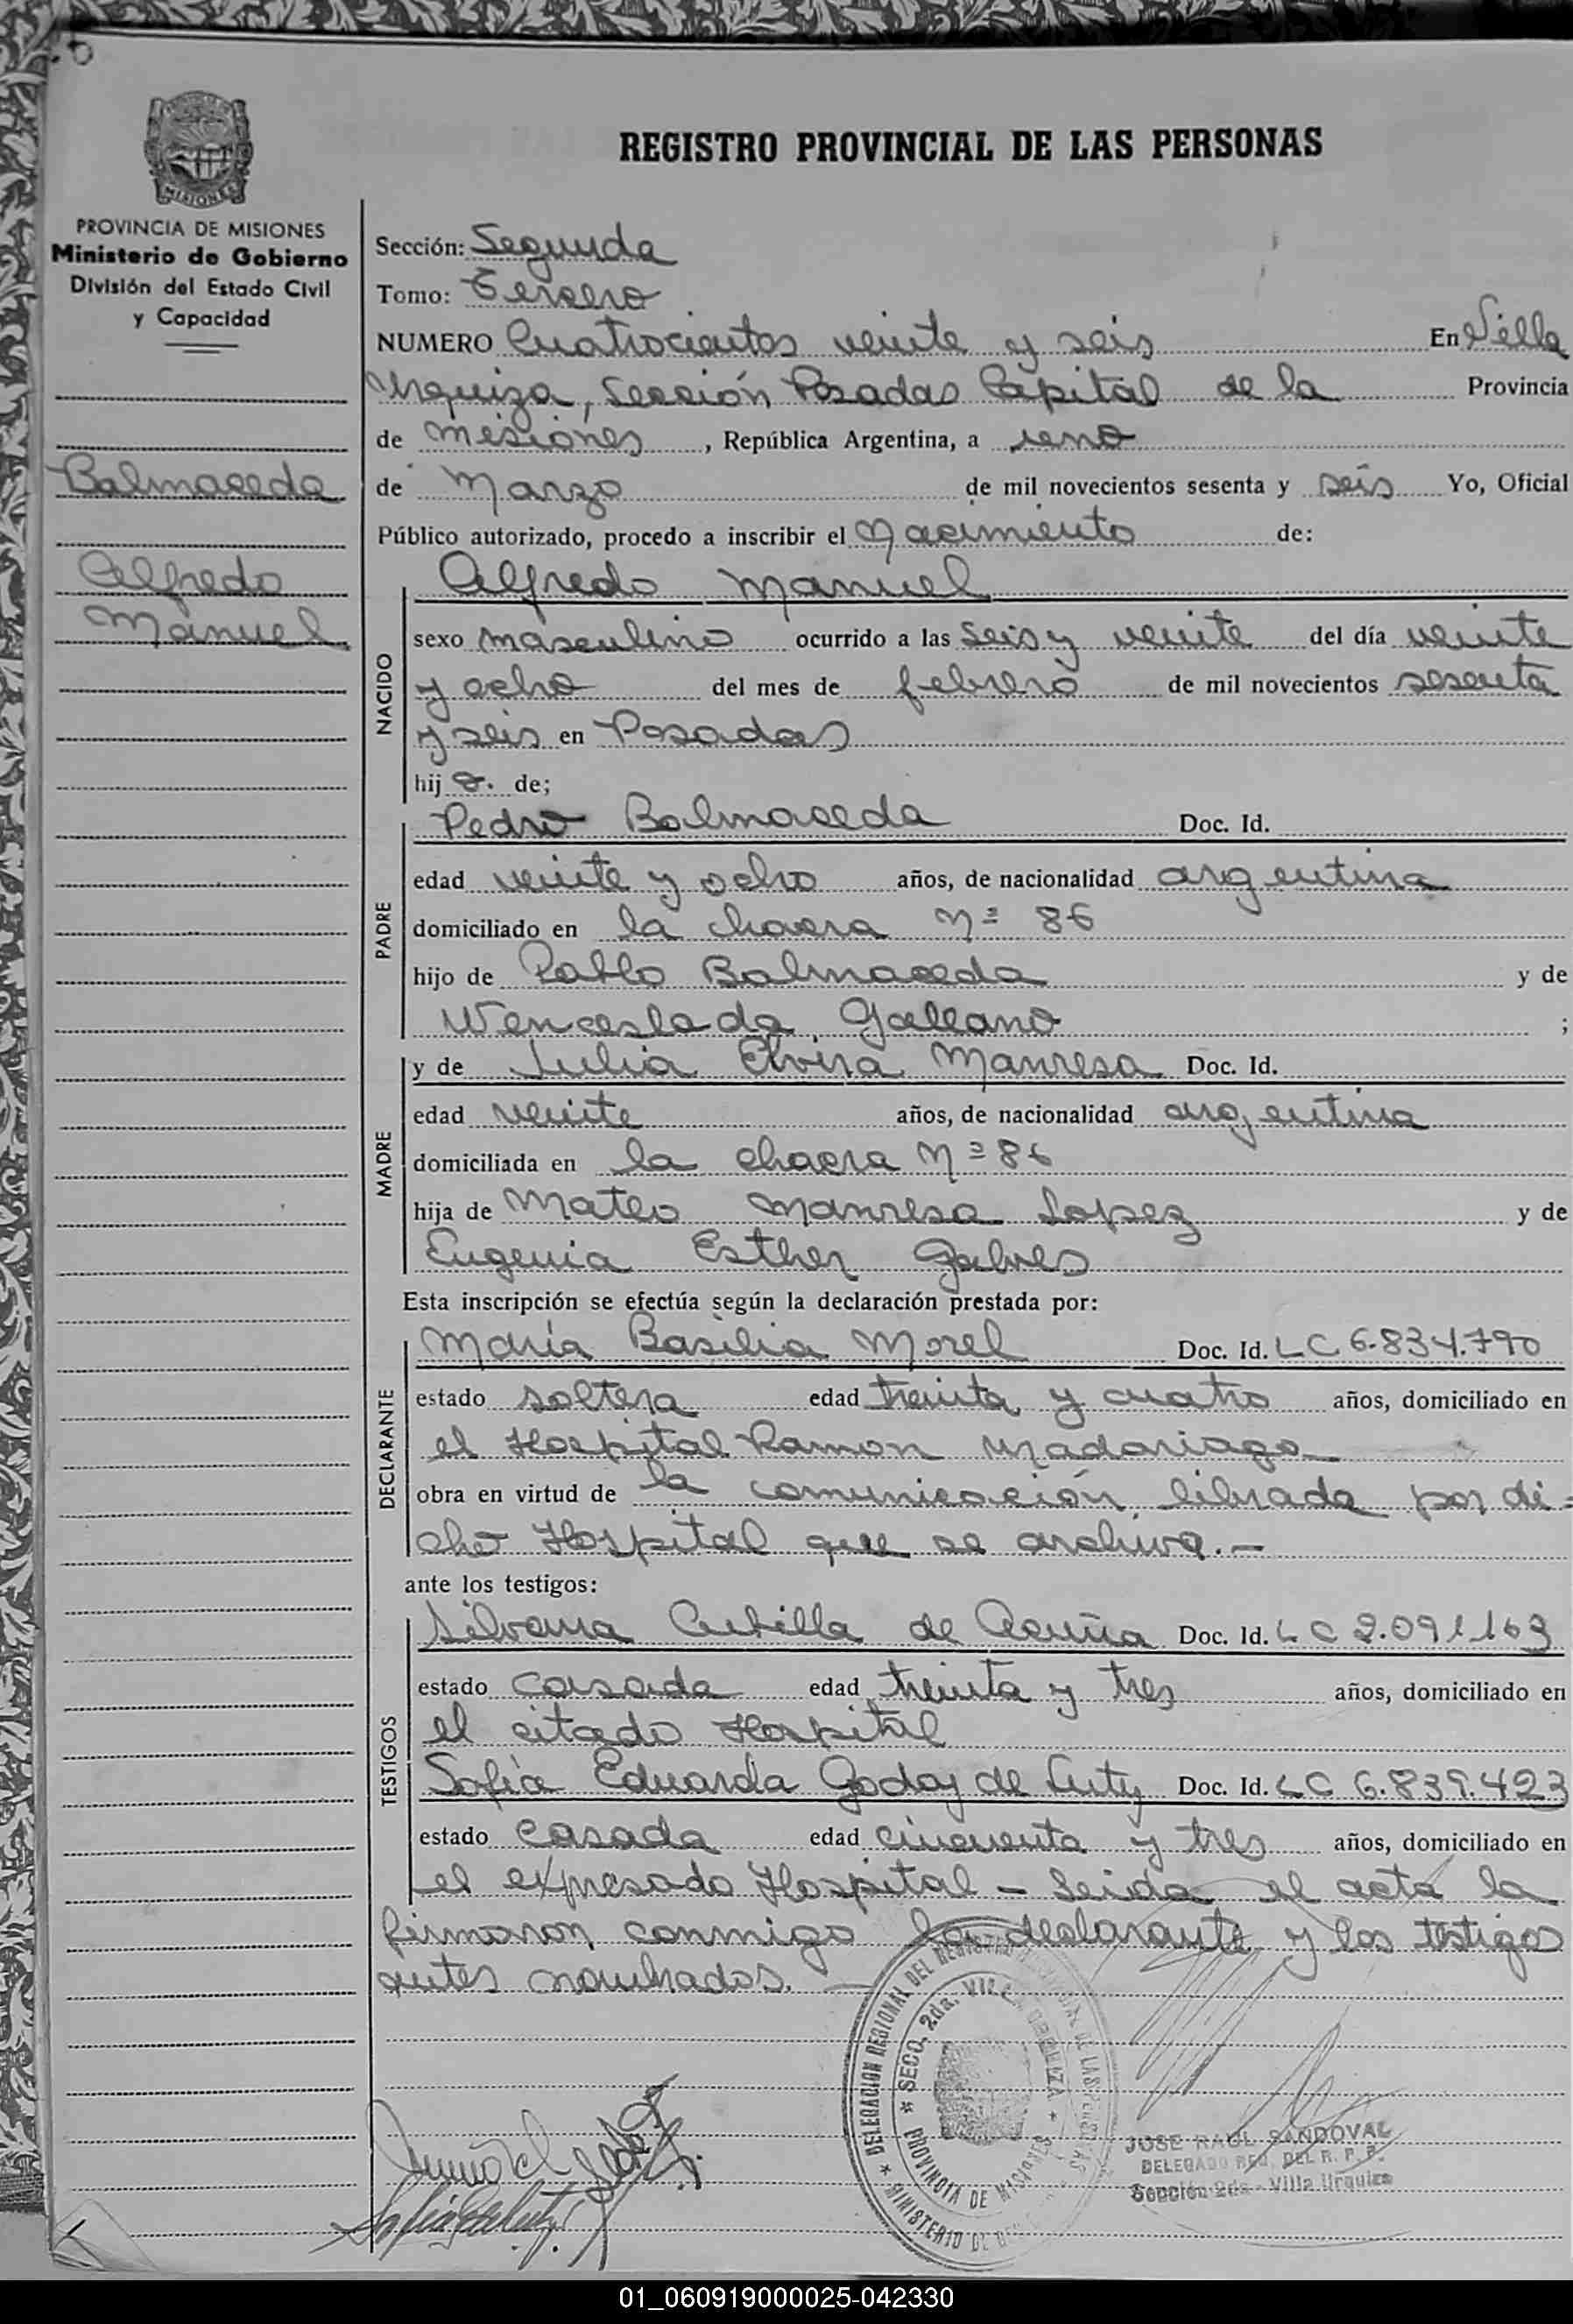 REGISTRO PROVINCIAL DE LAS PERSONAS
MISIONES
PROVINCIA DE MISIONES
Ministerio de Gobierno
División del Estado Civil
y Capacidad
Balmaceda
Alfredo
Manuel
Sección: Segunda
Tomo: Tercero
NUMERO Cuatrocientos veinte y seis En Villa
Urquiza, Sección Posadas Capital de la Provincia
de Misiones, República Argentina, a uno
de Marzo de mil novecientos sesenta y seis Yo, Oficial
Público autorizado, procedo a inscribir el Nacimiento de:
NACIDO
Alfredo Manuel
sexo masculino ocurrido a las seis y veinte del día veinte
y ocho del mes de febrero de mil novecientos sesenta
y seis en Posadas
hij o. de;
PADRE
Pedro Balmaceda Doc. Id.
edad veinte y ocho años, de nacionalidad argentina
domiciliado en la chacra Nº 86
hijo de Pablo Balmaceda y de
Wenceslada Galeano ;
MADRE
y de Julia Elvira Manresa Doc. Id.
edad veinte años, de nacionalidad argentina
domiciliada en la chacra Nº 86
hija de Mateo Manresa Lopez y de
Eugenia Esther Galves
Esta inscripción se efectúa según la declaración prestada por:
DECLARANTE
María Basilia Morel Doc. Id. LC 6.834.790
estado soltera edad treinta y cuatro años, domiciliado en
el Hospital Ramon Madariaga
obra en virtud de la comunicación librada por di=
cho Hospital que se archiva.-
ante los testigos:
TESTIGOS
Silvana de Acuña Doc. Id. LC 2.091.163
estado casada edad treinta y tres años, domiciliado en
el citado Hospital
Sofía Eduarda Godoy de Doc. Id. LC 6.839.423
estado casada edad cincuenta y tres años, domiciliado en
el expresado Hospital - Leida el acta la
firmaron conmigo la declarante y los testigos
antes nombrados.
DELEGACION REGIONAL DEL REGISTRO PROVINCIAL DE LAS PERSONAS
SECC. 2da. VILLA URQUIZA
PROVINCIA DE MISIONES
MINISTERIO DE
JOSE RAUL SANDOVAL
DELEGADO REG. DEL R. P. P.
Sección 2da - Villa Urquiza
01_060919000025-042330